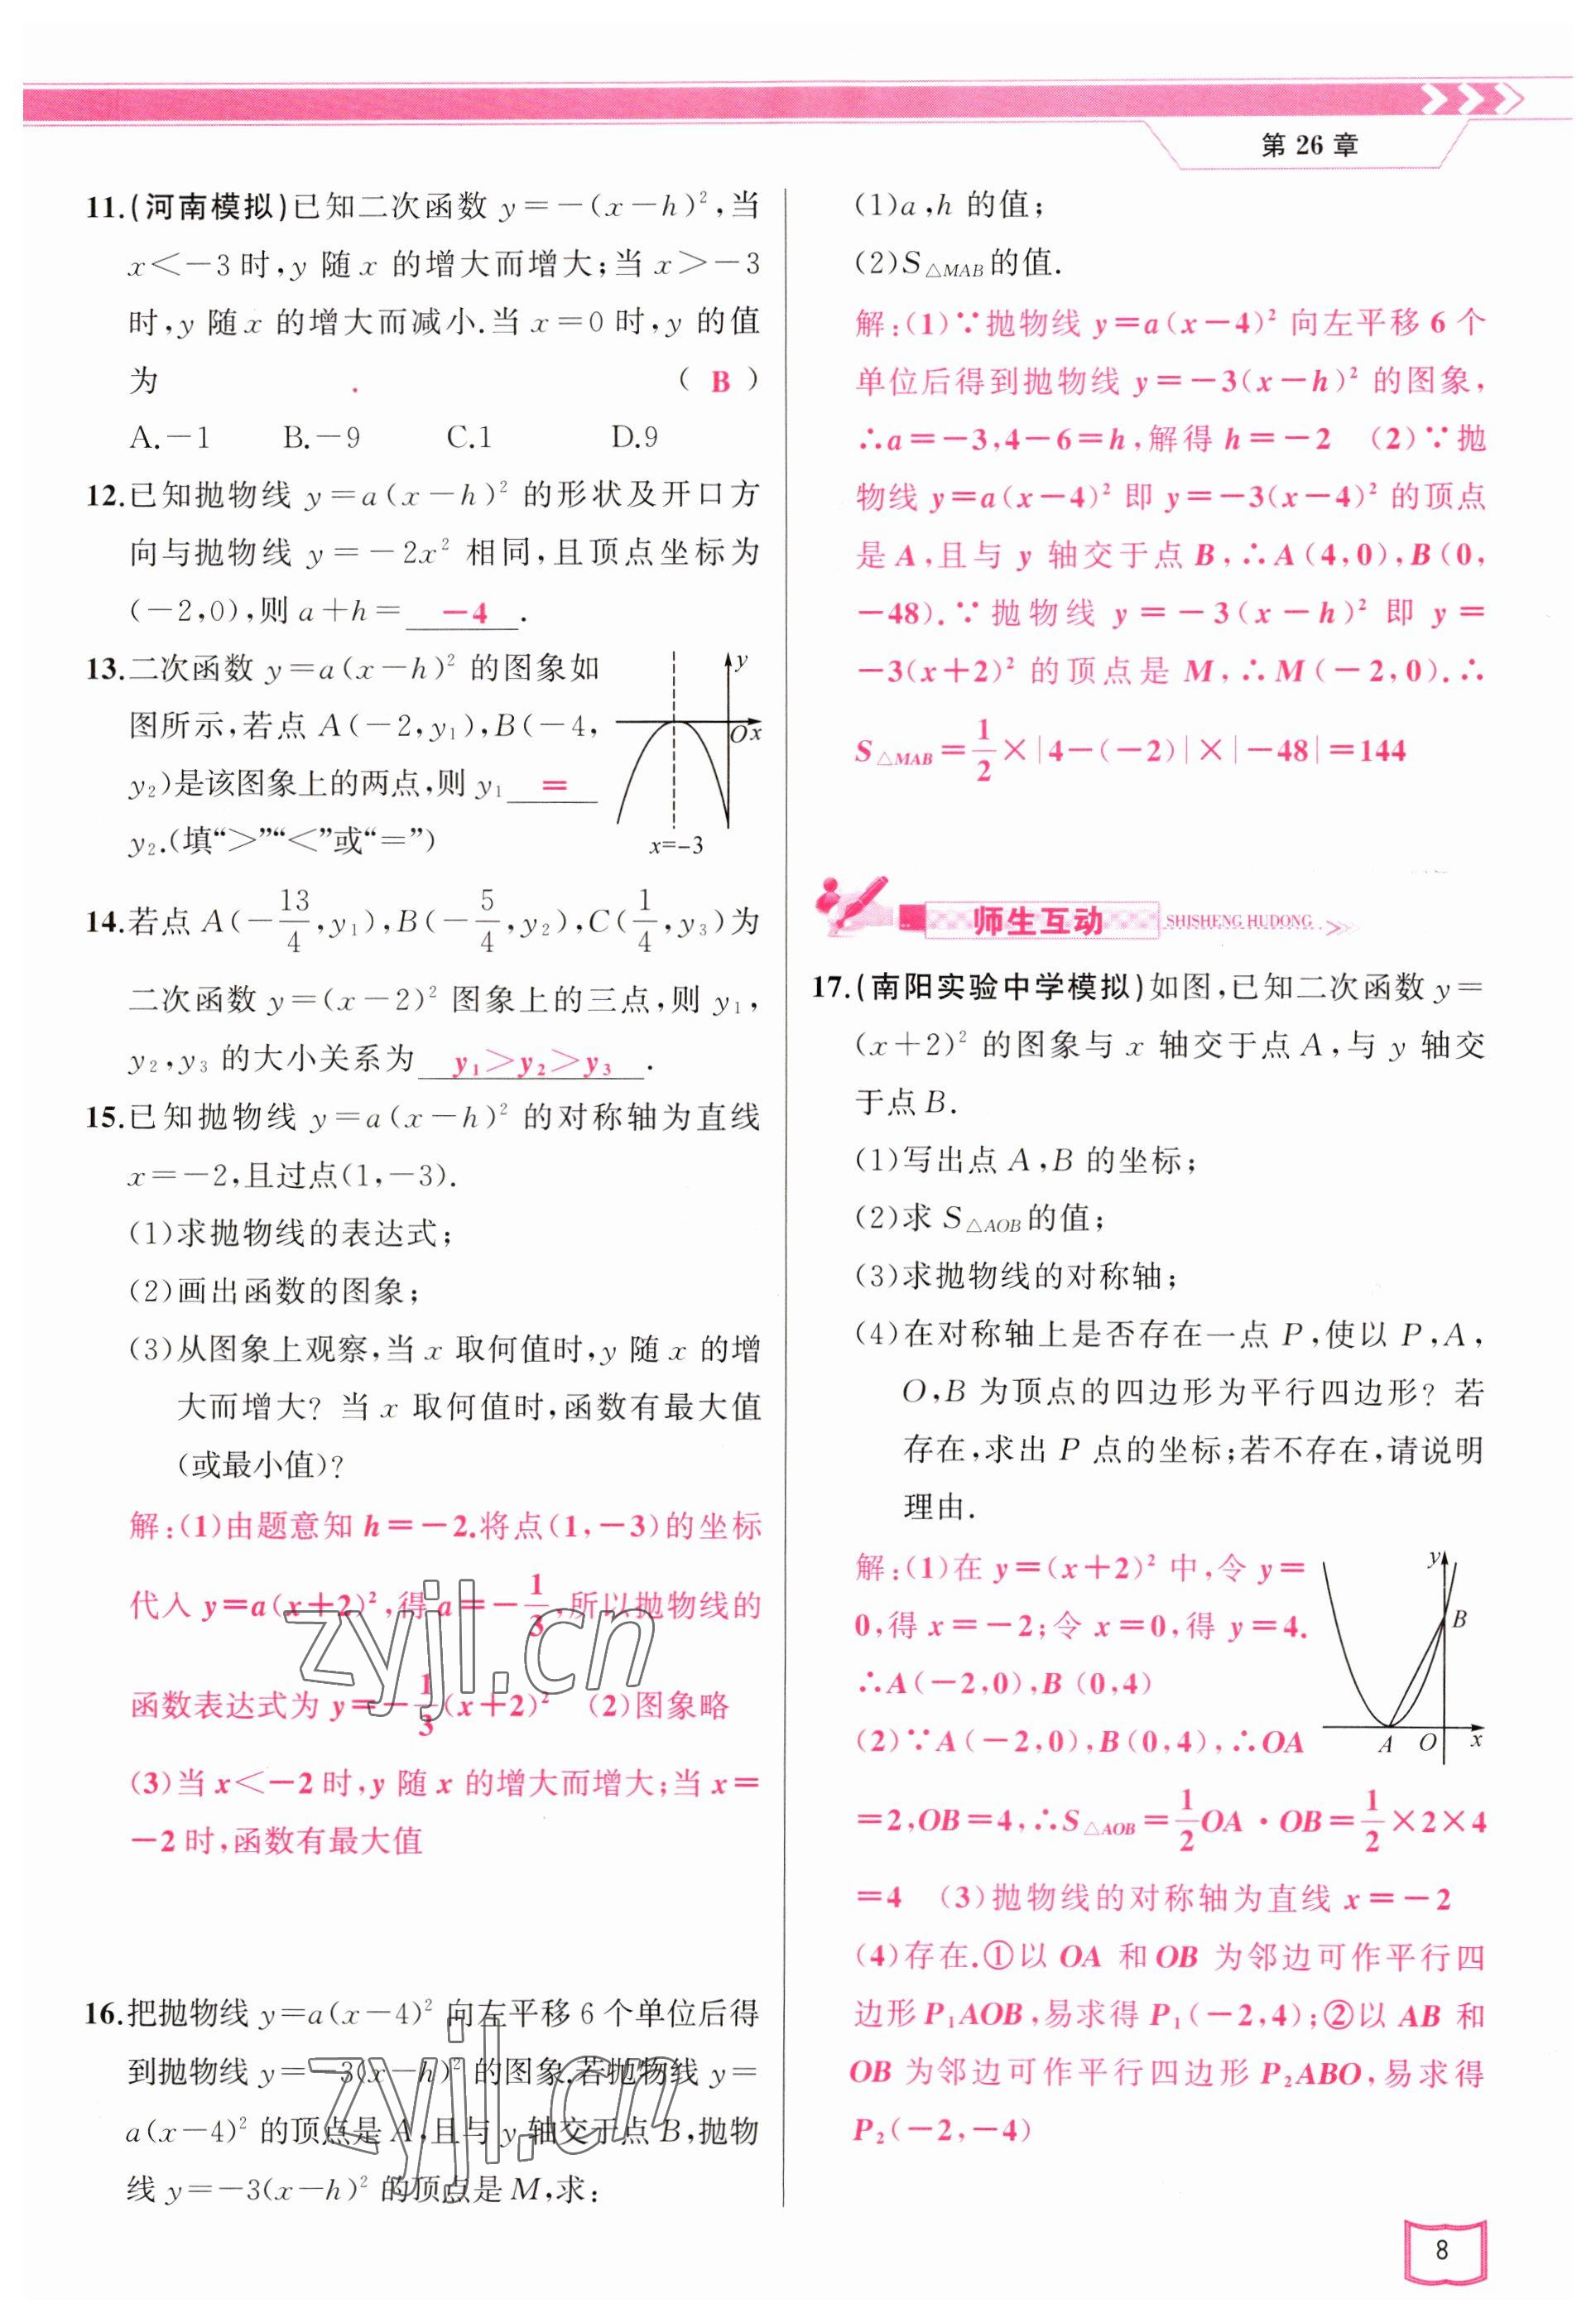 第 26 章
11.(河南模拟)已知二次函数 y=-(x-h)²,当
x<-3时,y 随 x 的增大而增大;当 x>-3
时,y 随 x 的增大而减小.当 x=0 时,y 的值
为 . ( B )
A.-1 B.-9 C.1 D.9
12.已知抛物线 y=a(x-h)² 的形状及开口方
向与抛物线 y=-2x² 相同,且顶点坐标为
(-2,0),则 a+h= -4 .
13.二次函数 y=a(x-h)² 的图象如
图所示,若点 A(-2,y₁),B(-4,
y₂)是该图象上的两点,则 y₁ =
y₂.(填“>”“<”或“=”)
y
O x
x=-3
14.若点 A(-13/4,y₁),B(-5/4,y₂),C(1/4,y₃)为
二次函数 y=(x-2)² 图象上的三点,则 y₁,
y₂,y₃ 的大小关系为 y₁>y₂>y₃ .
15.已知抛物线 y=a(x-h)² 的对称轴为直线
x=-2,且过点(1,-3).
(1)求抛物线的表达式;
(2)画出函数的图象;
(3)从图象上观察,当 x 取何值时,y 随 x 的增
大而增大? 当 x 取何值时,函数有最大值
(或最小值)?
解:(1)由题意知 h=-2.将点(1,-3)的坐标
代入 y=a(x+2)²,得 a=-1/3,所以抛物线的
函数表达式为 y=-1/3(x+2)² (2)图象略
(3)当 x<-2 时,y 随 x 的增大而增大;当 x=
-2 时,函数有最大值
zyjl.cn
16.把抛物线 y=a(x-4)² 向左平移 6 个单位后得
到抛物线 y=-3(x-h)² 的图象.若抛物线 y=
a(x-4)² 的顶点是 A,且与 y 轴交于点 B,抛物
线 y=-3(x-h)² 的顶点是 M,求:
zyjl.cn
(1)a,h 的值;
(2)S△MAB的值.
解:(1)∵抛物线 y=a(x-4)² 向左平移 6 个
单位后得到抛物线 y=-3(x-h)² 的图象,
∴a=-3,4-6=h,解得 h=-2 (2)∵抛
物线 y=a(x-4)² 即 y=-3(x-4)² 的顶点
是 A,且与 y 轴交于点 B,∴A(4,0),B(0,
-48).∵抛物线 y=-3(x-h)² 即 y=
-3(x+2)² 的顶点是 M,∴M(-2,0).∴
S△MAB=1/2×|4-(-2)|×|-48|=144
师生互动 SHISHENG HUDONG
17.(南阳实验中学模拟)如图,已知二次函数 y=
(x+2)² 的图象与 x 轴交于点 A,与 y 轴交
于点 B.
(1)写出点 A,B 的坐标;
(2)求 S△AOB的值;
(3)求抛物线的对称轴;
(4)在对称轴上是否存在一点 P,使以 P,A,
O,B 为顶点的四边形为平行四边形? 若
存在,求出 P 点的坐标;若不存在,请说明
理由.
解:(1)在 y=(x+2)² 中,令 y=
0,得 x=-2;令 x=0,得 y=4.
∴A(-2,0),B(0,4)
(2)∵A(-2,0),B(0,4),∴OA
y
B
A O x
=2,OB=4,∴S△AOB=1/2OA·OB=1/2×2×4
=4 (3)抛物线的对称轴为直线 x=-2
(4)存在.①以 OA 和 OB 为邻边可作平行四
边形 P₁AOB,易求得 P₁(-2,4);②以 AB 和
OB 为邻边可作平行四边形 P₂ABO,易求得
P₂(-2,-4)
8